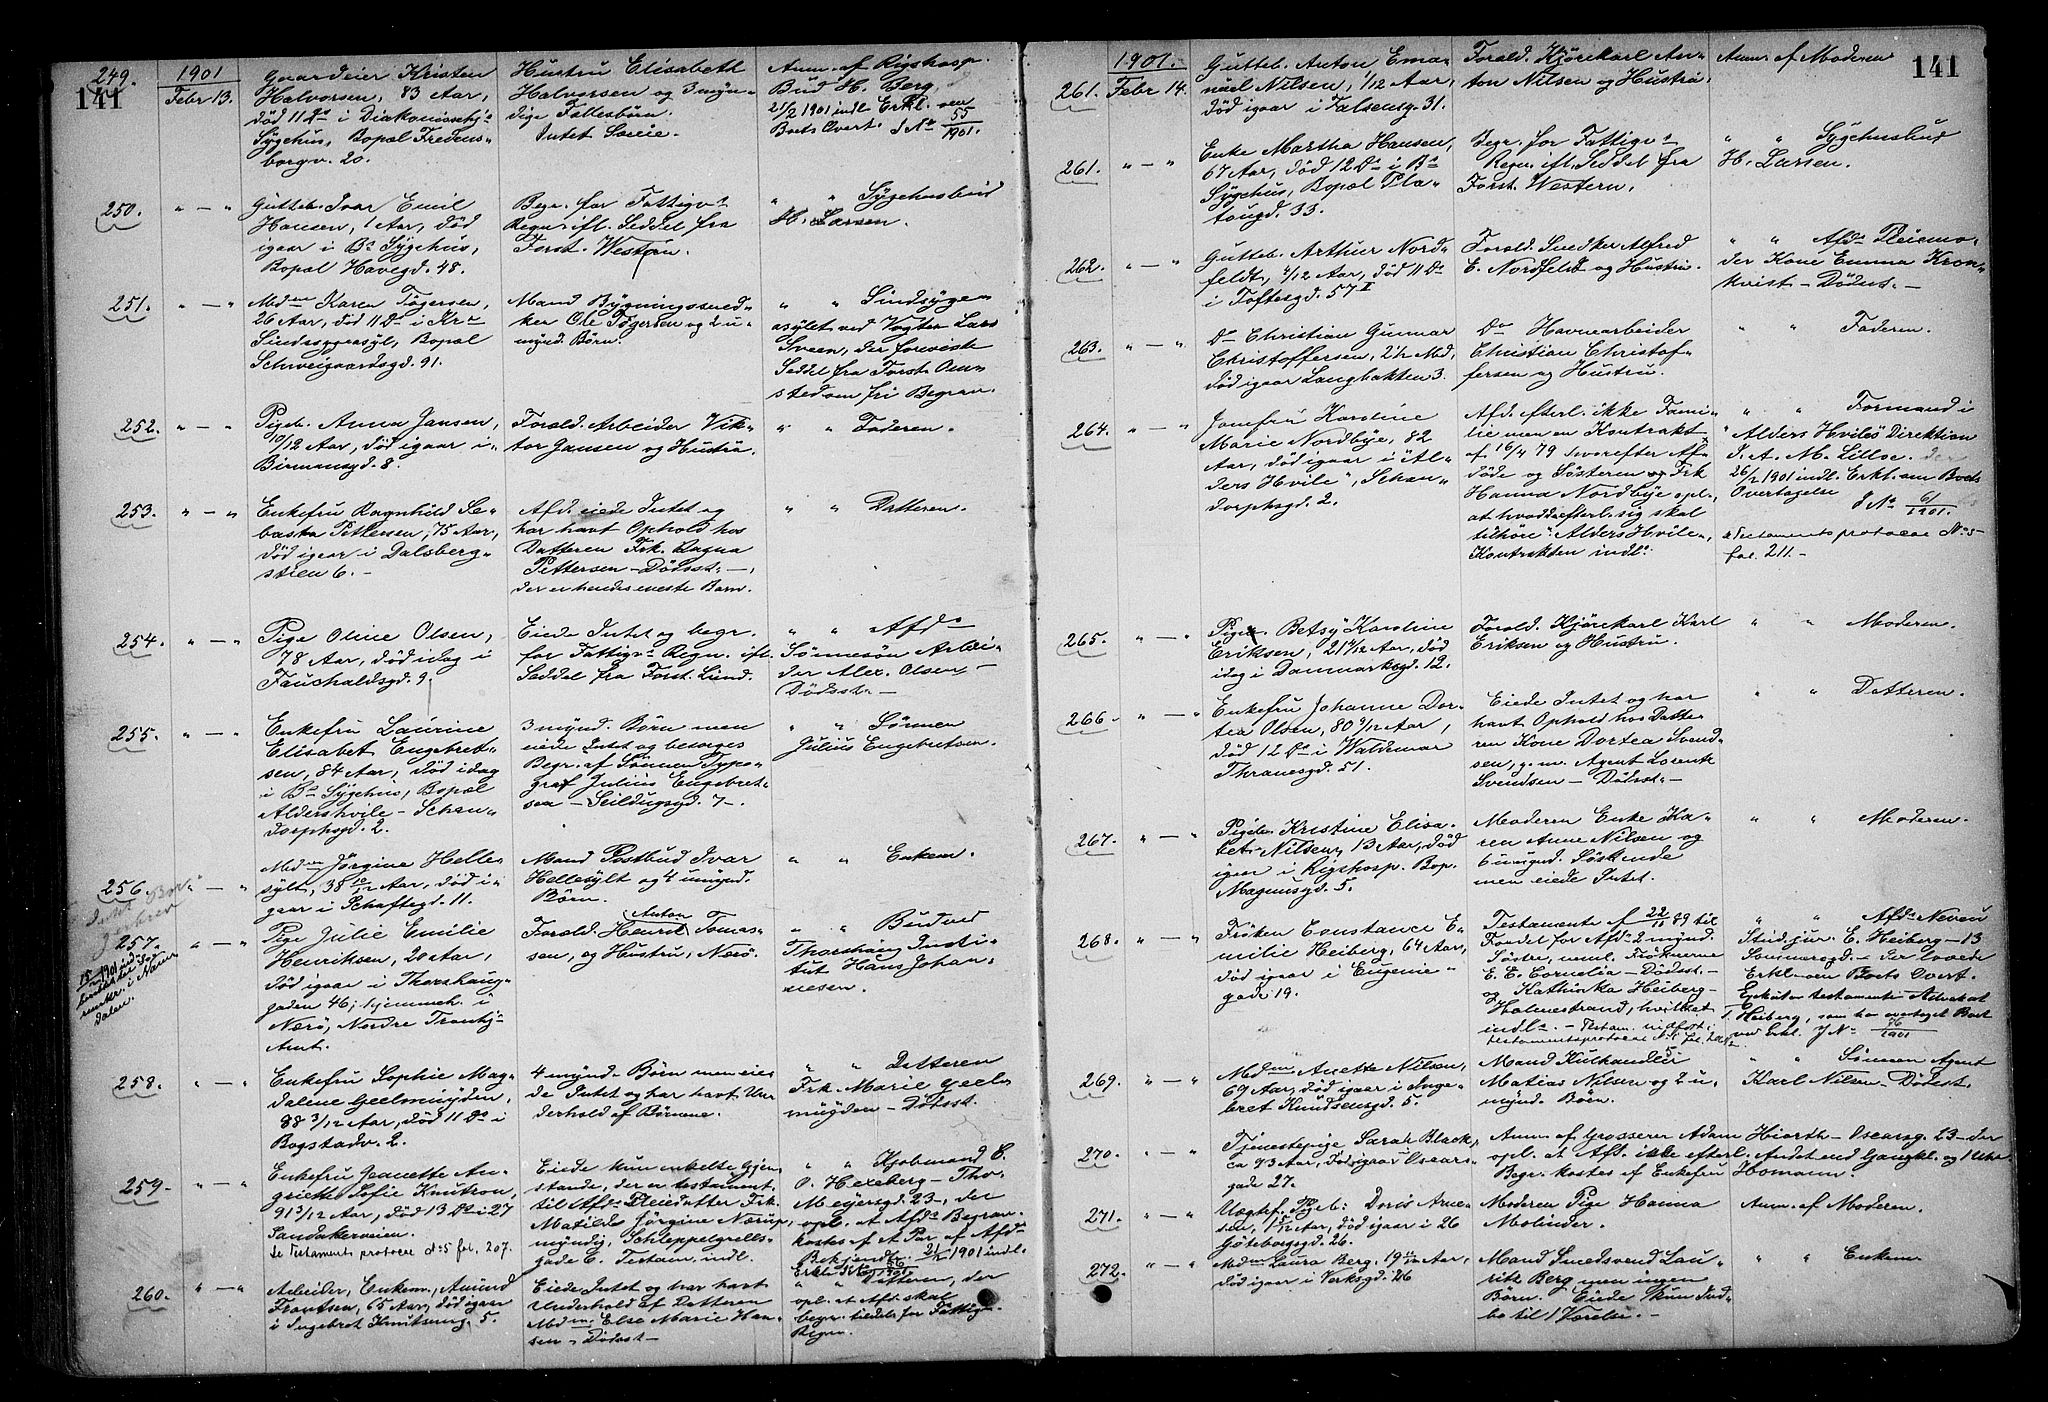 141
249.
1901
Febr 13.
Gaardeier Kristen
Halvorsen, 83 Aar,
död 11 Ds i Diakonissehj.
Sygehus, Bopæl Fredens-
borgv. 20.
Hustru Elisabeth
Halvorsen og 3 myn-
dige Fællesbörn.
Intet Særeie.
Anm. af Rigshosp.
Bud H. Berg.
21/2 1901 indl. Erkl. om
Boets Overt. J No 55/1901.
250.
" — "
Gutteb. Ivar Emil
Hansen, 1 Aar, död
igaar i Bs Sygehus,
Bopæl Havegd. 48.
Begr. for Fattigvs
Regn. ifl. Seddel fra
Forst. Western.
" " Sygehusbud
H. Larsen.
251.
" — "
Mdme Karen Tögersen,
26 Aar, död 11 Ds i Kra
Sindssygeasyl, Bopæl
Schweigaardsgd. 91.
Mand Bygningssned-
ker Ole Tögersen og 2 u-
mynd. Börn.
" " Sindsyge-
asylet ved Vogter Lars
Sveen, der foreviste
Seddel fra Forst. Om-
sted om fri Begrav.
252.
" — "
Pigeb. Anna Jansen,
10/12 Aar, död igaar i
Birmansgd. 8.
Forald. Arbeider Vik-
tor Jansen og Hustru.
" " Faderen.
253.
" — "
Enkefru Ragnhild Se-
baska Pettersen, 75 Aar,
död igaar i Dalsberg-
stien 6. –
Afd. eiede Intet og
har havt Ophold hos
Datteren Frk. Ragna
Pettersen – Dödsst. –,
der er hendes eneste Barn.
" " Datteren.
254.
" — "
Pige Oline Olsen,
78 Aar, död idag i
Fauchaldsgd. 9.
Eiede Intet og begr.
for Fattigvs Regn. ifl.
Seddel fra Forst. Lund.
" " Afds
Sönnesön Arbei-
der Alex. Olsen –
Dödsst. –
255.
" — "
Enkefru Laurine
Elisabet Engebret-
sen, 84 Aar, död idag
i Bs Sygehus, Bopæl
Aldershvile – Schan-
dorphsgd. 2.
3 mynd. Börn men
eiede Intet og besörges
Begr. af Sönnen Typo-
graf Julius Engebret-
sen – Seildugsgd. 7 –.
" " Sönnen
Julius Engebretsen.
256.
" — "
Mdme Jörgine Helle-
sylt, 38 10/12 Aar, död i-
gaar i Schaftegd. 11.
Mand Postbud Ivar
Hellesylt og 4 umynd.
Börn.
" " Enkem.
257.
" — "
Pige Julie Emilie
Henriksen, 20 Aar,
död igaar i Thorshaug-
gaden 46, hjemmeh. i
Nærö, Nordre Trondhj.
Amt.
Forald. Henrik Anton Tomas-
sen, og Hustru, Nærö.
" " Bud ved
Thorshaug Insti-
tut Hans Johan-
nesen.
258.
" — "
Enkefru Sophie Mag-
dalene Geelmuyden,
88 3/12 Aar, död 11 Ds i
Bogstadv. 2.
4 mynd. Börn men eie-
de Intet og har havt Un-
derhold af Börnene.
" " Datteren
Frk. Marie Geel-
muyden – Dödsst.
259.
" — "
Enkefru Jeanette An-
griette Sofie Knutzon,
91 3/12 Aar, död 13 Ds i 27
Sandakerveien.
Se Testaments protocol No 5 fol. 207.
Eiede kun enkelte Gjen-
stande, der er testament.
til Afds Pleiedatter Frk.
Matilde Jörgine Nærup,
myndig, Schleppegrells-
gade 6. Testam. indl.
" " Kjöbmand C.
O. Hexeberg – Tho-
Meyersgd. 23 –, der
opl. at Afds Begrav.
kostes af et Par af Afds
Bekjendte. 21/2 1901 indl.
260.
" — "
Arbeider, Enkem., Amund
Frantsen, 65 Aar, död igaar
i Ingebret Knutsensg. 5.
Eiede Intet og har havt
Underhold af Datteren
Mdme Else Marie Han-
sen – Dödsst –
" " Datteren, der
opl. at Afd. skal
begr. for Fattigv.
Regn.
141
1901.
261.
Febr 14.
Gutteb. Anton Ema-
nuel Nilsen, 1/12 Aar,
död igaar i Falsensg. 31.
Forald. Kjörekarl An-
ton Nilsen og Hustru.
Anm. af Moderen
261.
" — "
Enke Martha Hansen,
67 Aar, död 12 Ds i Bs
Sygehus, Bopæl Pla-
tougd. 33.
Begr. for Fattigvs
Regn. ifl. Seddel fra
Forst. Western.
" " Sygehusbud
H. Larsen.
262.
" — "
Gutteb. Arthur Nord-
feldt, 4/12 Aar, död 11 Ds
i Toftesgd. 57 II
Forald. Snedker Alfred
E. Nordfeldt og Hustru.
" " Afds Pleiemo-
der Kone Emma Kron-
kvist – Dödsst. –
263.
" — "
Ds Christian Gunnar
Christoffersen, 2½ Md,
död igaar Langbakken 3.
Ds Havnearbeider
Christian Christof-
fersen og Hustru.
" " Faderen.
264.
" — "
Jomfru Karoline
Marie Nordbye, 82
Aar, död igaar i "Al-
ders Hvile", Schan-
dorphsgd. 2.
Afd. efterl. ikke Fami-
lie men en Kontrakt
af 16/4 79 hvorefter Af-
döde og Södteren Frk
Hanna Nordbye opl.
at hvad de efterl. sig skal
tilhöre "Alders Hvile".
Kontrakten indls.
" " Formand i
"Alders Hviles" Direktion
J. A. M. Lillse.
26/2 1901 indl. Erkl. om Boets
Overtagelse
J No 61/1901.
Testaments protocol No 5
fol. 211. –
265.
" — "
Pigeb. Betsy Karoline
Eriksen, 21 4/12 Aar, död
idag i Danmarksgd. 12.
Forald. Kjörekarl Karl
Eriksen og Hustru.
" " Moderen.
266.
" — "
Enkefru Johanne Dor-
tea Olsen, 80 9/12 Aar,
död 12 Ds i Waldemar
Thranesgd. 51.
Eiede Intet og har
havt Ophold hos Datte-
ren Kone Dortea Svend-
sen, g. m. Agent Lorentz
Svendsen – Dödsst –
" " Datteren.
267.
" — "
Pigeb. Kristine Elisa-
bet Nilsen, 13 Aar, död
igaar i Rigshosp. Bop.
Magnusgd. 5.
Moderen Enke Ka-
ren Anne Nilsen og
6 umynd. Söskende
men eiede Intet.
" " Moderen.
268.
" — "
Fröken Constance E-
milie Heiberg, 64 Aar,
död igaar i Eugenie-
gade 19.
Testamente af 22/11 89 til
Fordel for Afds 2 mynd.
Söstre, neml. Frökenerne
E. E. Cornelia – Dödsst. –
og Kathinka Heiberg –
Holmestrand, hvilket
indls. – Testam. indfört i
" " Afds Neveu
Stud. jur. E. Heiberg – 13
– der lovede
Erkl. om Boets Overt.
Exekutor testamenti Advokat
Heiberg, som har overtaget Boet
ved Erkl. J No 76/1901
269.
" — "
Mdme Anette Nilsen,
69 Aar, död igaar i Inge-
bret Knudsensgd. 5.
Mand Kulhandler
Matias Nilsen og 2 u-
mynd. Börn.
" " Sönnen Agent
Karl Nilsen – Dödsst.
270.
" — "
Tjenestepige Sarah Black,
ca 73 Aar, död igaar i Oscars-
gade 27.
Anm. af Grosserer Adam Hiorth – Oscarsg. 23 – der
opl. at Afd. ikke efterl. Andet end Gangkl. og 1 Uhr.
Begr. kostes af Enkefru Homann.
271.
" — "
Uægtef. Pigeb. Doris Arne-
sen, 1 5/12 Aar, död igaar i 26
Göteborgsgd. 26.
Moderen Pige Hanna
Molinder.
Anm. af Moderen.
272.
" — "
Mdme Laura Berg, 19 11/12 Aar,
död igaar i Verksgd. 26
Mand Smedsvend Lau-
ritz Berg men ingen
Börn. Eiede kun Ind-
bo til 1 Værelse. –
" " Enkem.